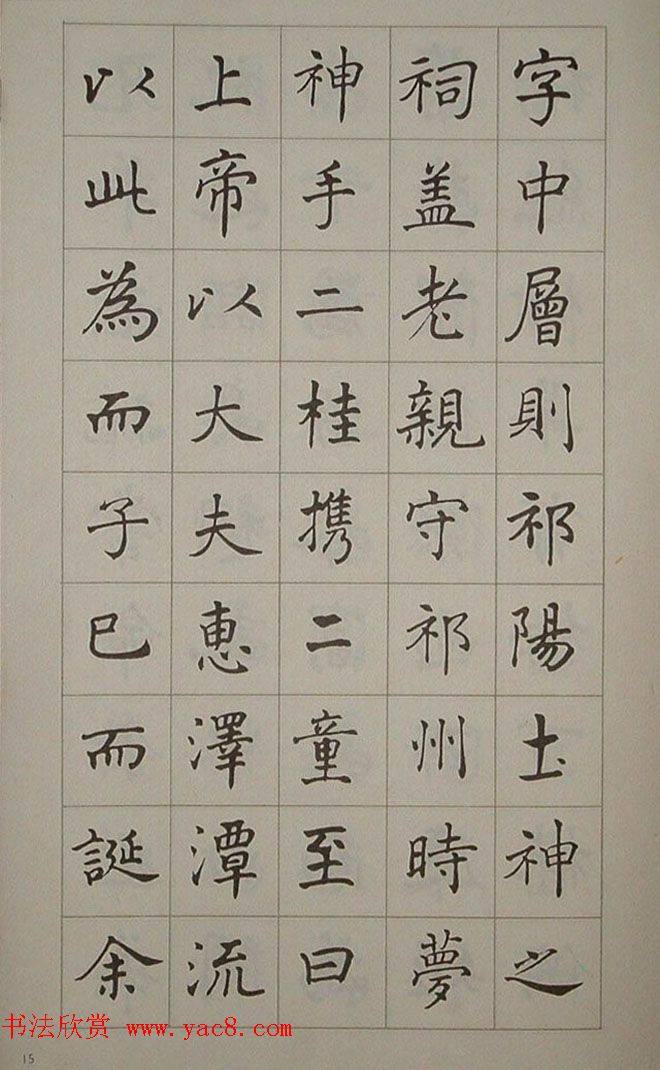 字中層則祁陽土神之
祠盖老親守祁州時夢
神手二桂携二童至曰
上帝以大夫惠澤潭流
以此為而子巳而誕余
书法欣赏 www.yac8.com
15